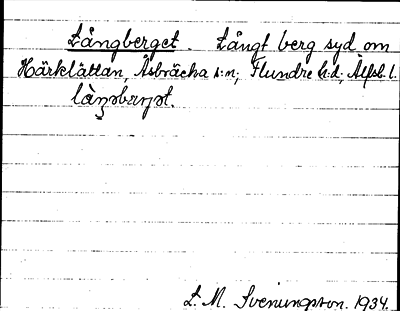 Långberget. Långt berg syd om
Härklättan, Åsbräcka s:n, Flundre h:d, Älfsb. l.
S. M. Svenungson. 1934.